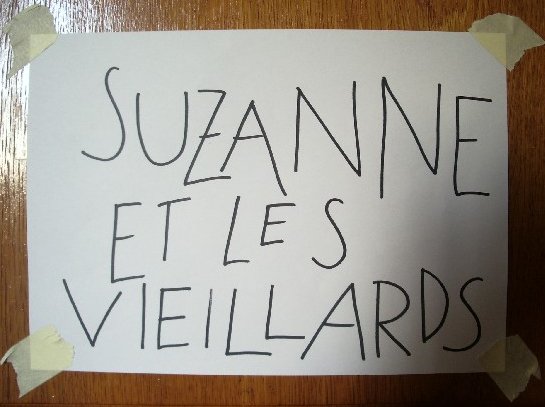 SUZANNE
ET LES
VIEILLARDS